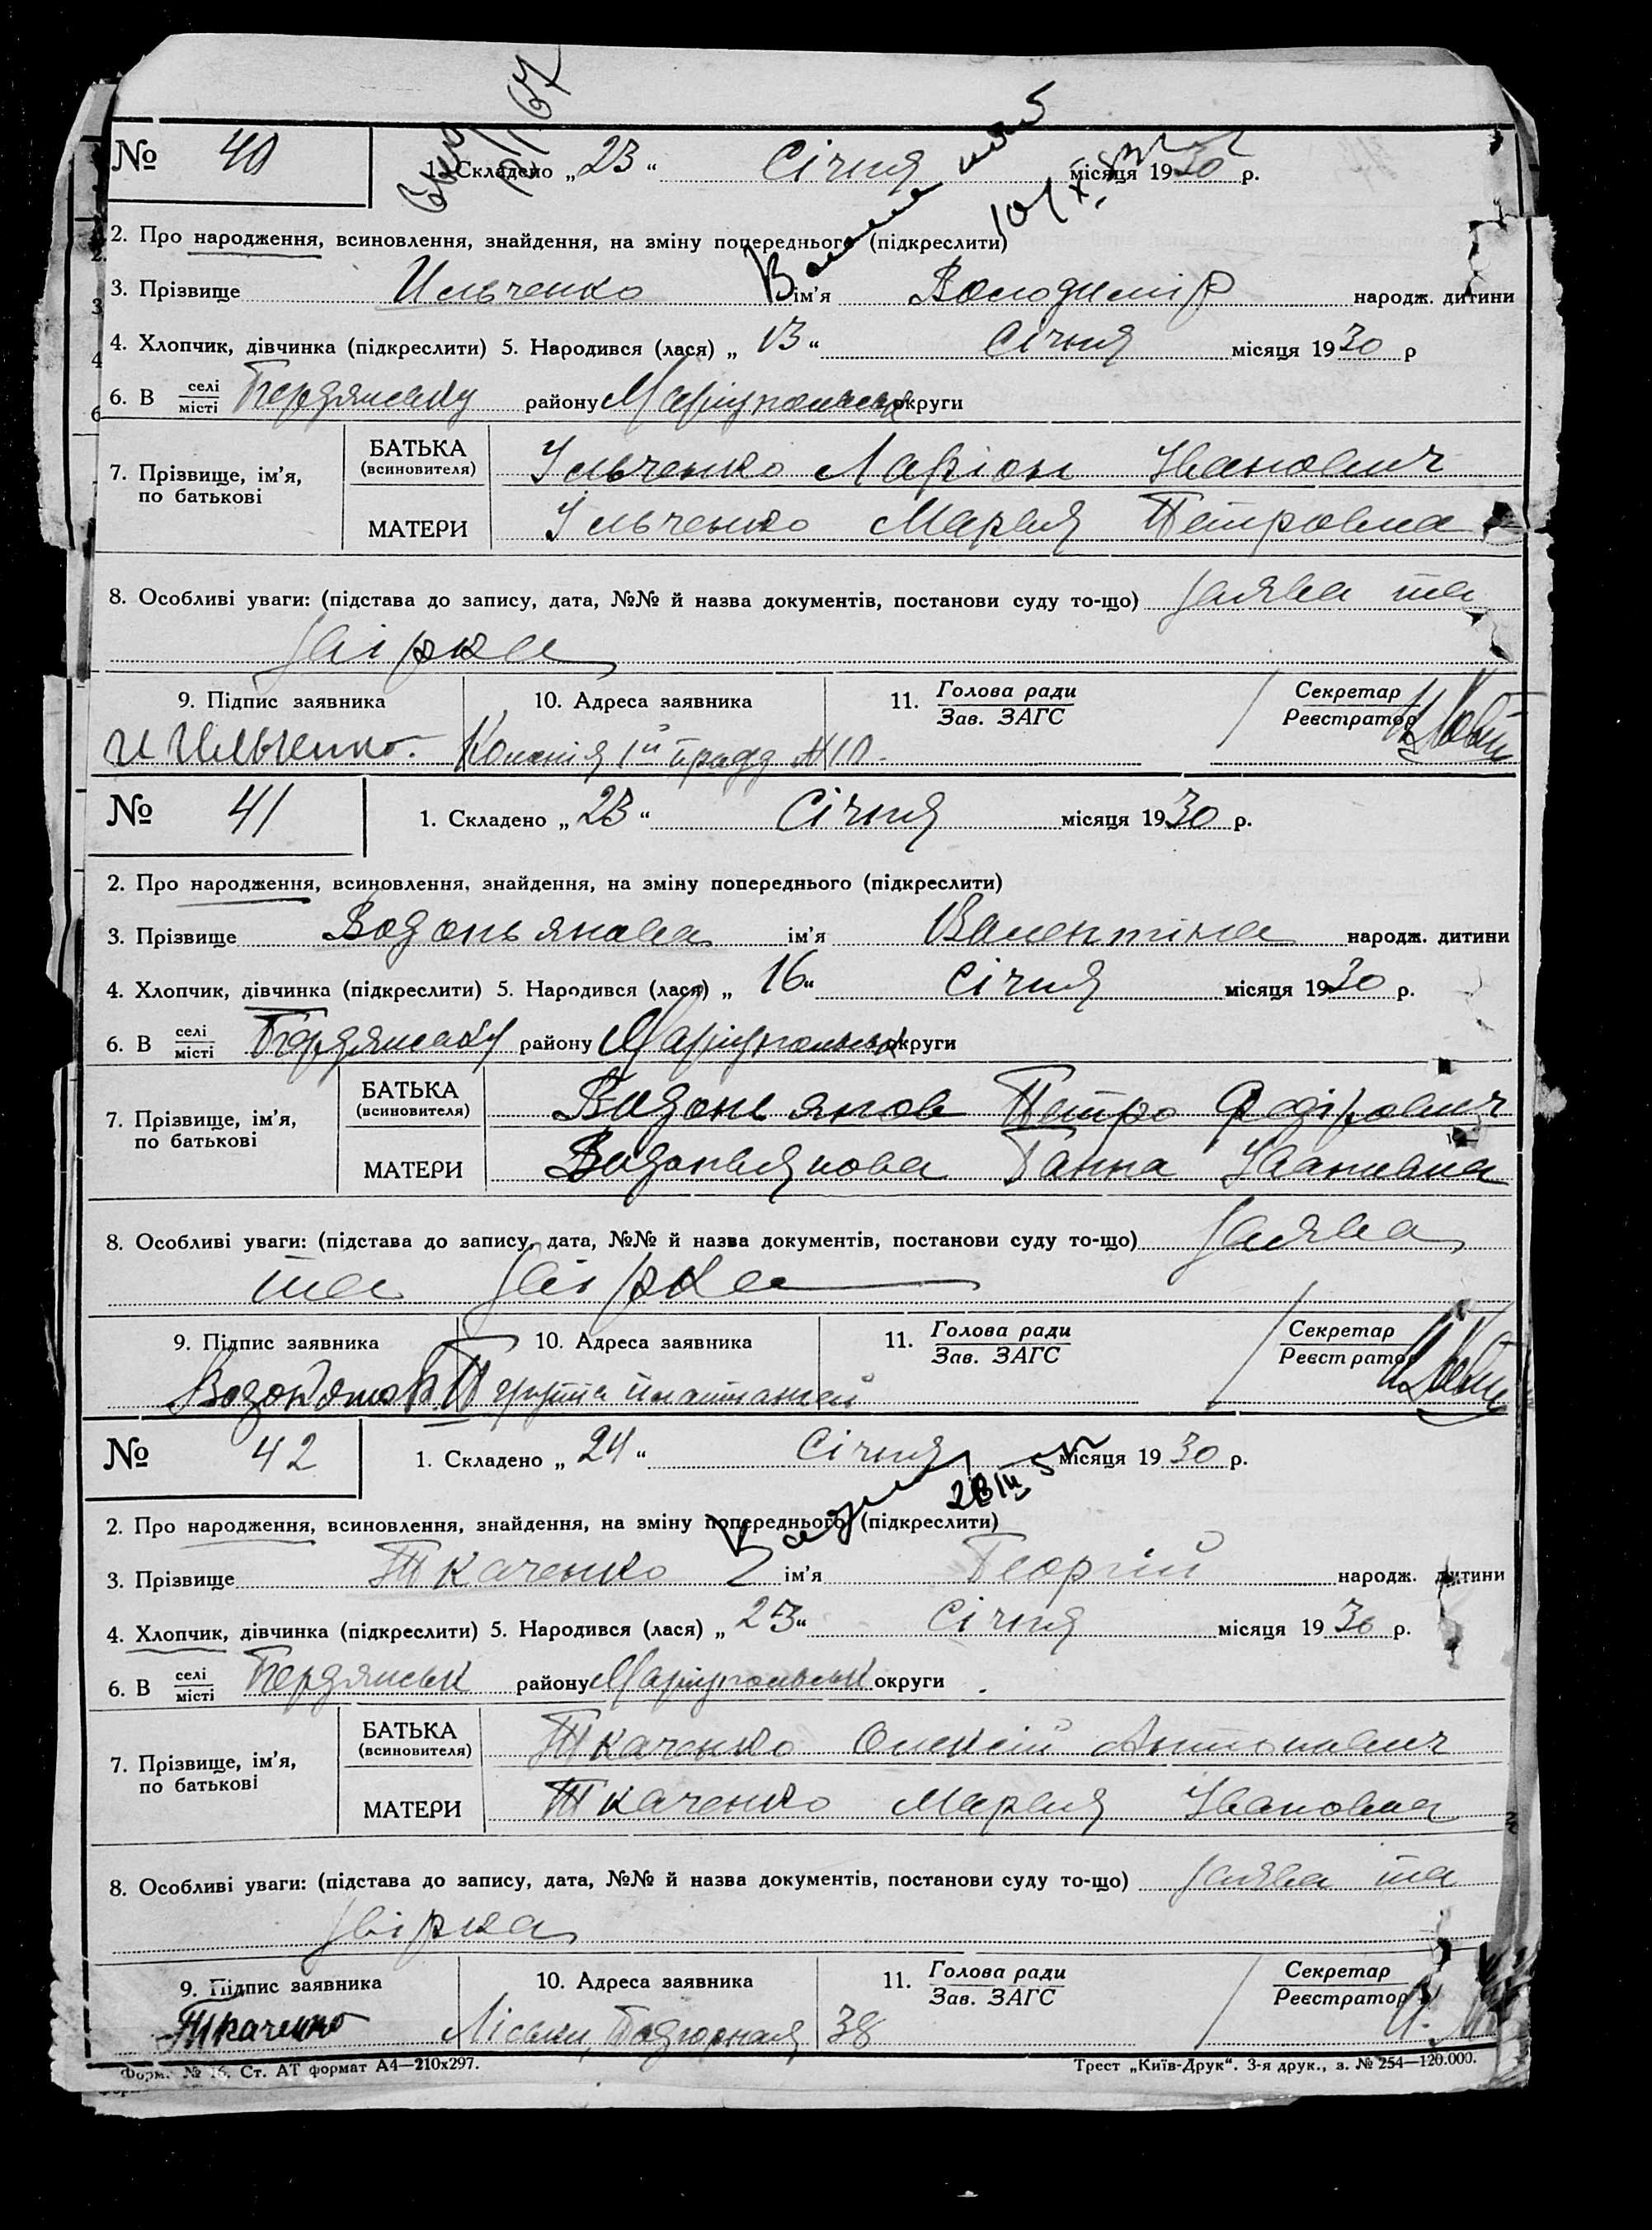 № 40 1. Складено „23“ Січня місяця 1930 р.
2. Про народження, всиновлення, знайдення, на зміну попереднього (підкреслити)
3. Прізвище Ильченко ім'я Володимір народж. дитини
4. Хлопчик, дівчинка (підкреслити) 5. Народився (лася) „13“ Січня місяця 1930 р
6. В селі місті Бердянську району Маріупольськ округи
7. Прізвище, ім'я, по батькові
БАТЬКА (всиновителя) Ільченко Ларіон Іванович
МАТЕРИ Ільченко Мария Петровна
8. Особливі уваги: (підстава до запису, дата, №№ й назва документів, постанови суду то-що) Заява та
звірка
9. Підпис заявника 10. Адреса заявника 11. Голова ради Зав. ЗАГС Секретар Реєстратор
И Ильченко. Колонія 1й №10.
№ 41 1. Складено „23“ Січня місяця 1930 р.
2. Про народження, всиновлення, знайдення, на зміну попереднього (підкреслити)
3. Прізвище Водопьянова ім'я Валентіна народж. дитини
4. Хлопчик, дівчинка (підкреслити) 5. Народився (лася) „16“ Січня місяця 1930 р.
6. В селі місті Бердянську району Маріупольськ округи
7. Прізвище, ім'я, по батькові
БАТЬКА (всиновителя) Водопьянов Петро Федірович
МАТЕРИ Водопьянова Ганна Іванівна
8. Особливі уваги: (підстава до запису, дата, №№ й назва документів, постанови суду то-що) Заява
та звірка
9. Підпис заявника 10. Адреса заявника 11. Голова ради Зав. ЗАГС Секретар Реєстратор
№ 42 1. Складено „24“ Січня місяця 1930 р.
2. Про народження, всиновлення, знайдення, на зміну попереднього (підкреслити)
3. Прізвище Ткаченко ім'я Георгій народж. дитини
4. Хлопчик, дівчинка (підкреслити) 5. Народився (лася) „23“ Січня місяця 1930 р.
6. В селі місті Бердянськ району Маріупольськ округи
7. Прізвище, ім'я, по батькові
БАТЬКА (всиновителя) Ткаченко Олексій Антонович
МАТЕРИ Ткаченко Мария Івановна
8. Особливі уваги: (підстава до запису, дата, №№ й назва документів, постанови суду то-що) Заява та
звірка
9. Підпис заявника 10. Адреса заявника 11. Голова ради Зав. ЗАГС Секретар Реєстратор
Ткаченко Ліски, Подгорная 38
Форм. № 16. Ст. АТ формат А4—210х297. Трест „Київ-Друк“. 3-я друк., з. № 254—120.000.